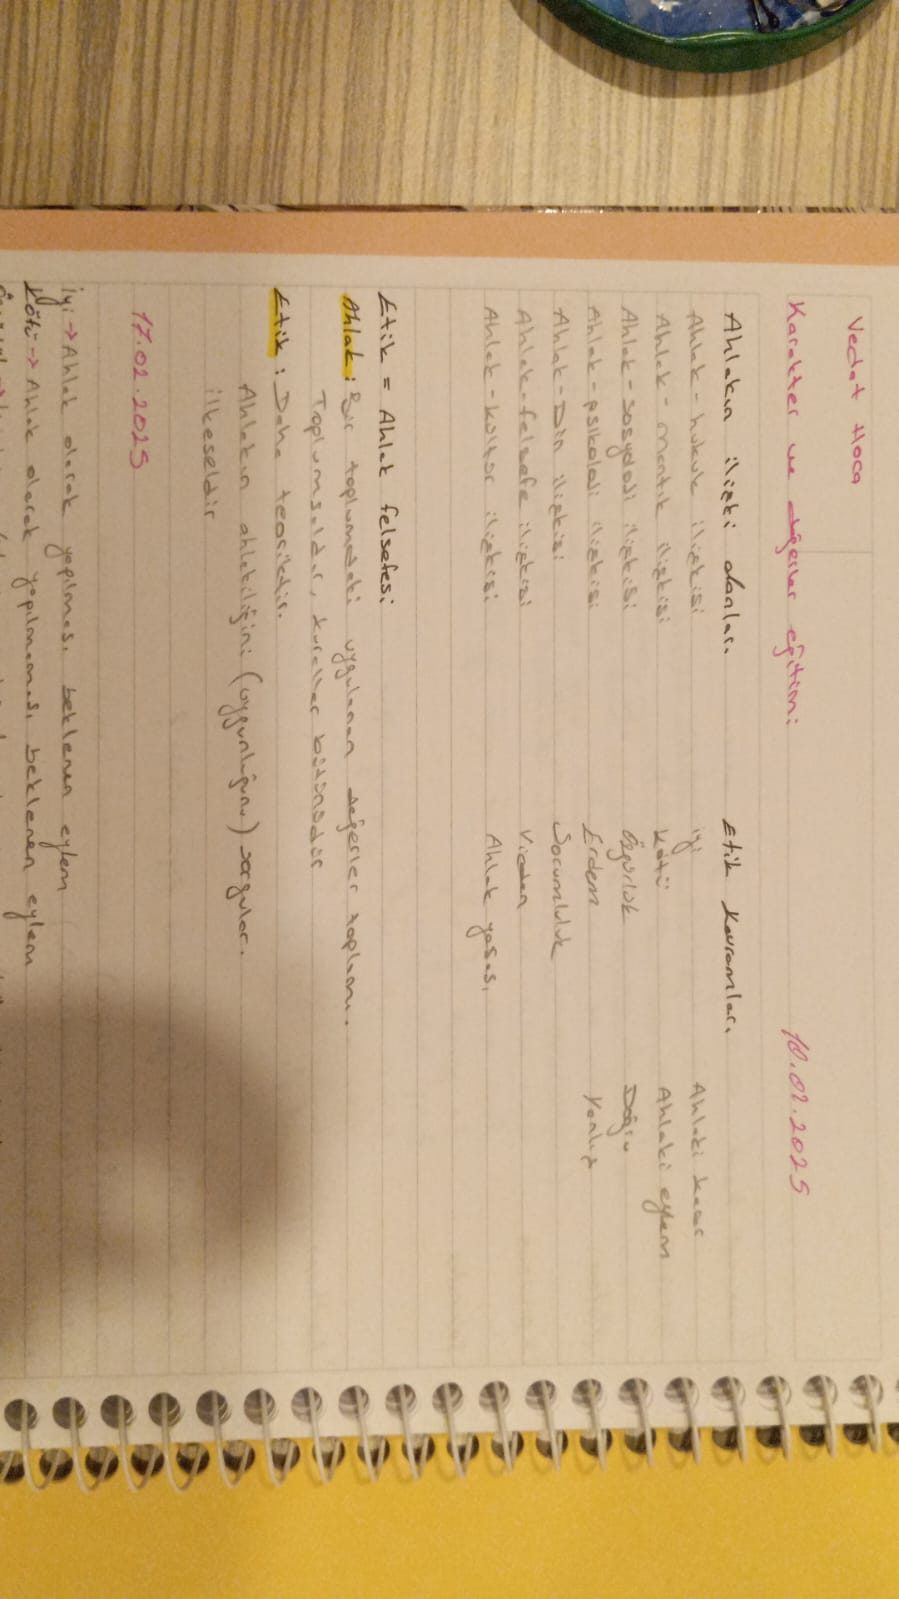 Vedat Hoca
Karakter ve değerler eğitimi 10.02.2025
Ahlakın ilişki alanları Etik kavramları
Ahlak-hukuk ilişkisi iyi Ahlaki karar
Ahlak-mantık ilişkisi kötü Ahlaki eylem
Ahlak-sosyoloji ilişkisi özgürlük Doğru
Ahlak-psikoloji ilişkisi Erdem Yanlış
Ahlak-Din ilişkisi Sorumluluk
Ahlak-felsefe ilişkisi Vicdan
Ahlak-kültür ilişkisi Ahlak yasası
Etik = Ahlak felsefesi
Ahlak: Bir toplumdaki uygulanan değerler toplamı.
Toplumsaldır, kurallar bütünüdür
Etik: Daha teoriktir.
Ahlakın ahlakiliğini (uygunluğunu) sorgular.
ilkeseldir
17.02.2025
iyi → Ahlak olarak yapılması beklenen eylem
Kötü → Ahlak olarak yapılmaması beklenen eylem